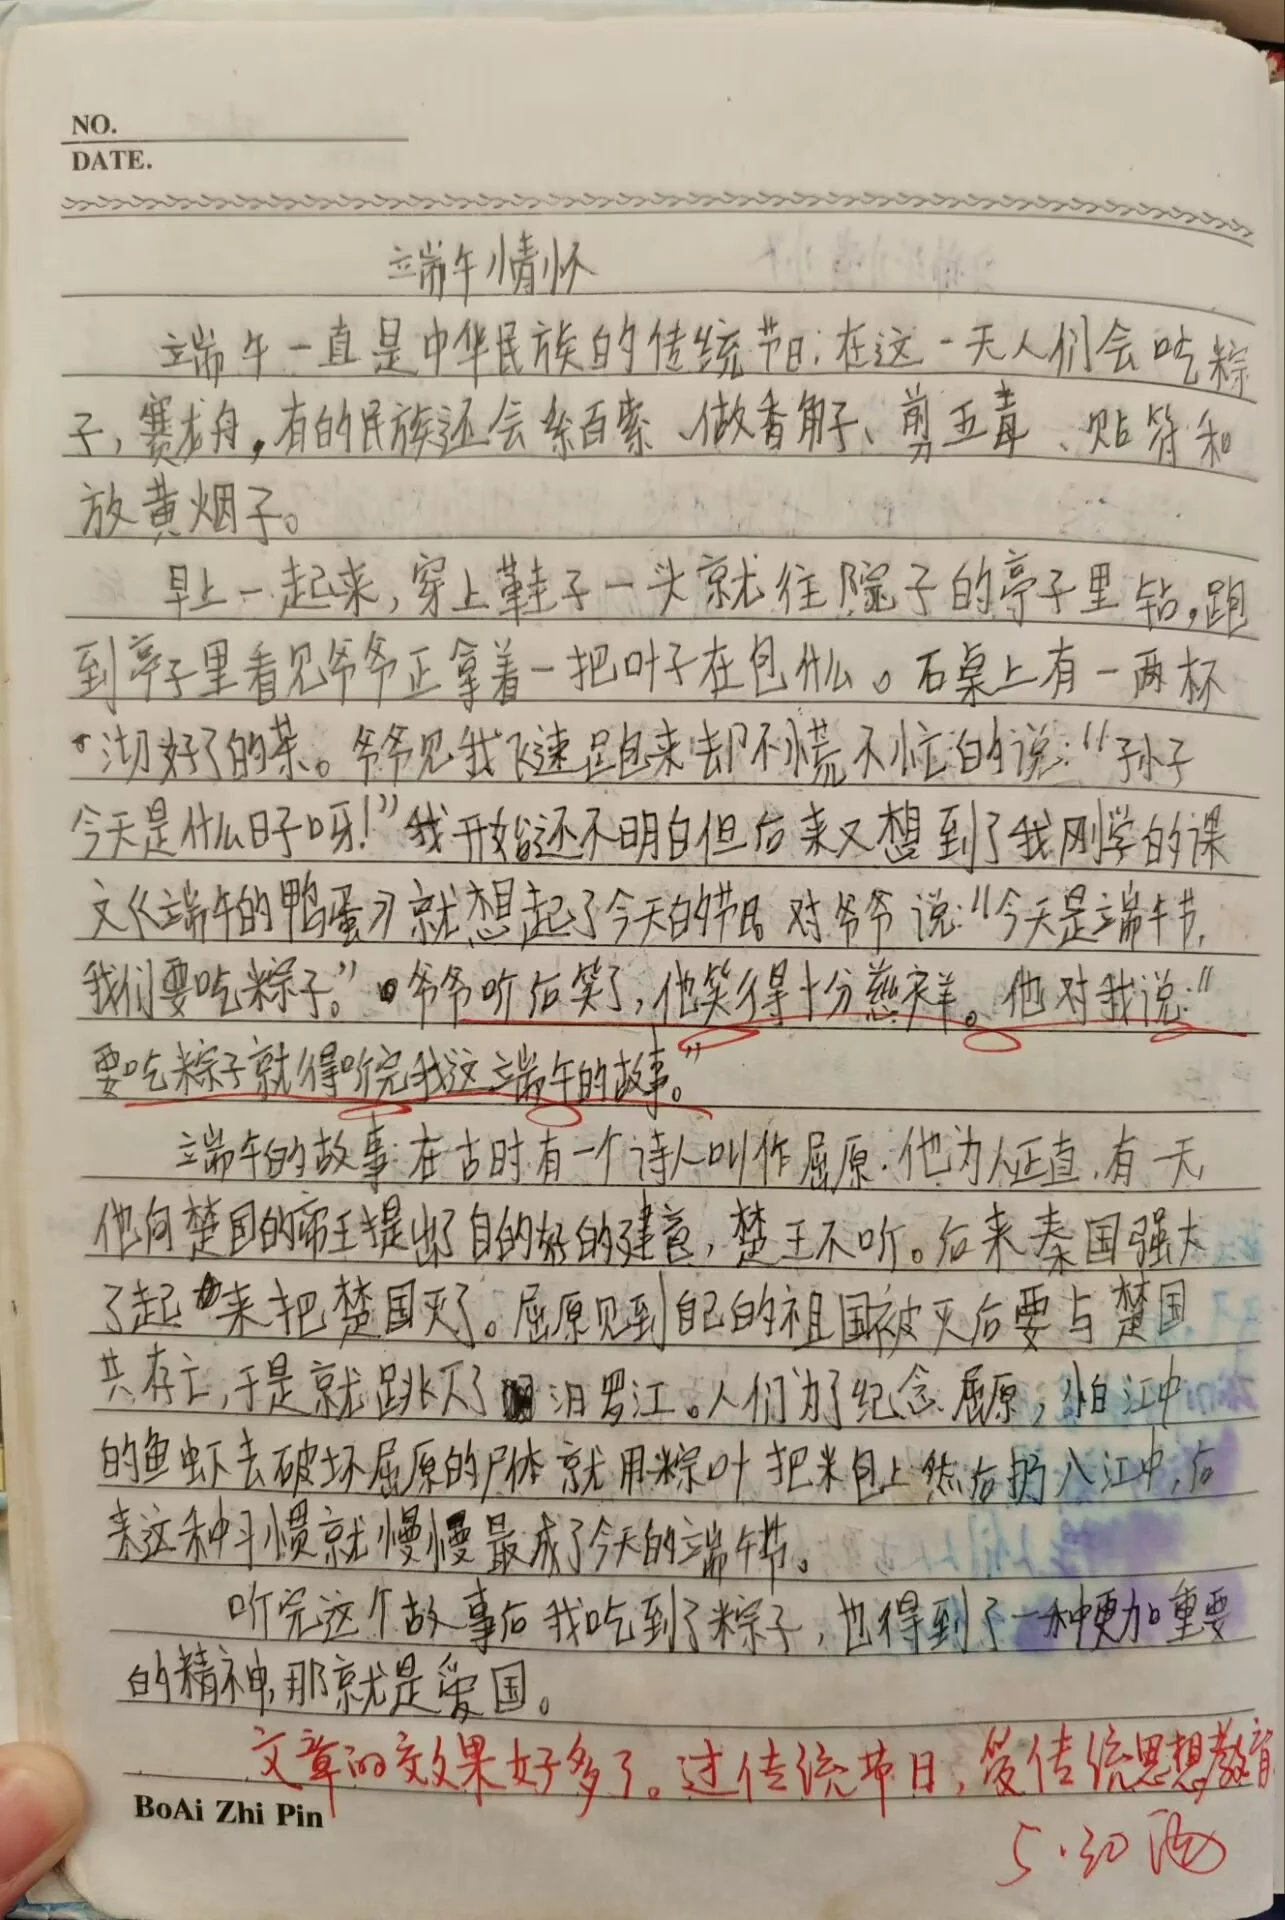 NO.
DATE.
端午情怀
端午一直是中华民族的传统节日;在这一天人们会吃粽
子,赛龙舟,有的民族还会系百索、做香角子、剪五毒、贴符和
放黄烟子。
早上一起来,穿上鞋子一头就往院子的亭子里钻,跑
到亭子里看见爷爷正拿着一把叶子在包什么。石桌上有一两杯
沏好了的茶。爷爷见我飞速跑来却不慌不忙的说:“孙子
今天是什么日子呀!”我开始还不明白但后来又想到了我刚学的课
文《端午的鸭蛋》就想起了今天的节日 对爷爷说:“今天是端午节,
我们要吃粽子。”爷爷听后笑了,他笑得十分慈祥。他对我说:“
要吃粽子就得听完我这端午的故事。”
端午的故事:在古时有一个诗人叫作屈原.他为人正直,有一天
他向楚国的帝王提出了自的好的建意,楚王不听。后来秦国强大
了起来把楚国灭了。屈原见到自己的祖国被灭后要与楚国
共存亡,于是就跳入了汨罗江。人们为了纪念屈原,怕江中
的鱼虾去破坏屈原的尸体就用粽叶把米包上然后扔入江中,后
来这种习惯就慢慢最成了今天的端午节。
听完这个故事后我吃到了粽子,也得到了一种更加重要
的精神,那就是爱国。
文章的效果好多了。过传统节日,受传统思想教育
BoAi Zhi Pin
5.30